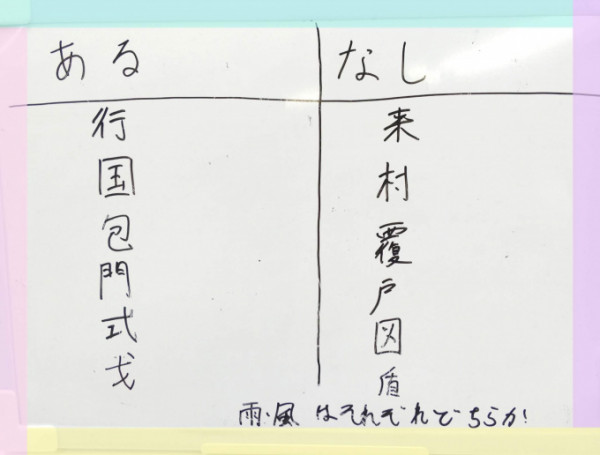 ある なし
行 来
国 村
包 覆
門 戸
式 図
戈 盾
雨・風はそれぞれどちらか!